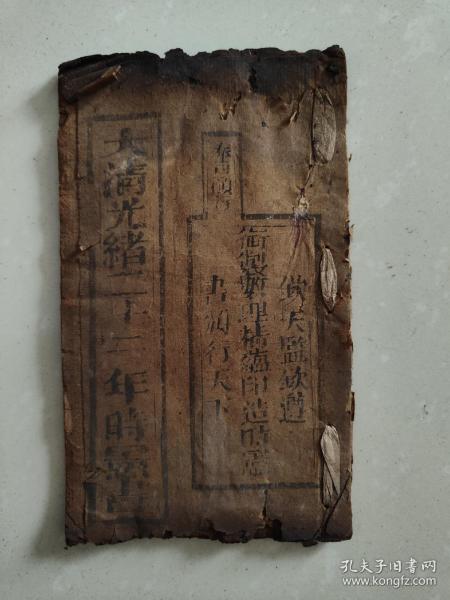 欽天監欽遵
御製數理精蘊印造時憲
書頒行天下
大清光緒二十三年時憲書
孔夫子旧书网
www.kongfz.com